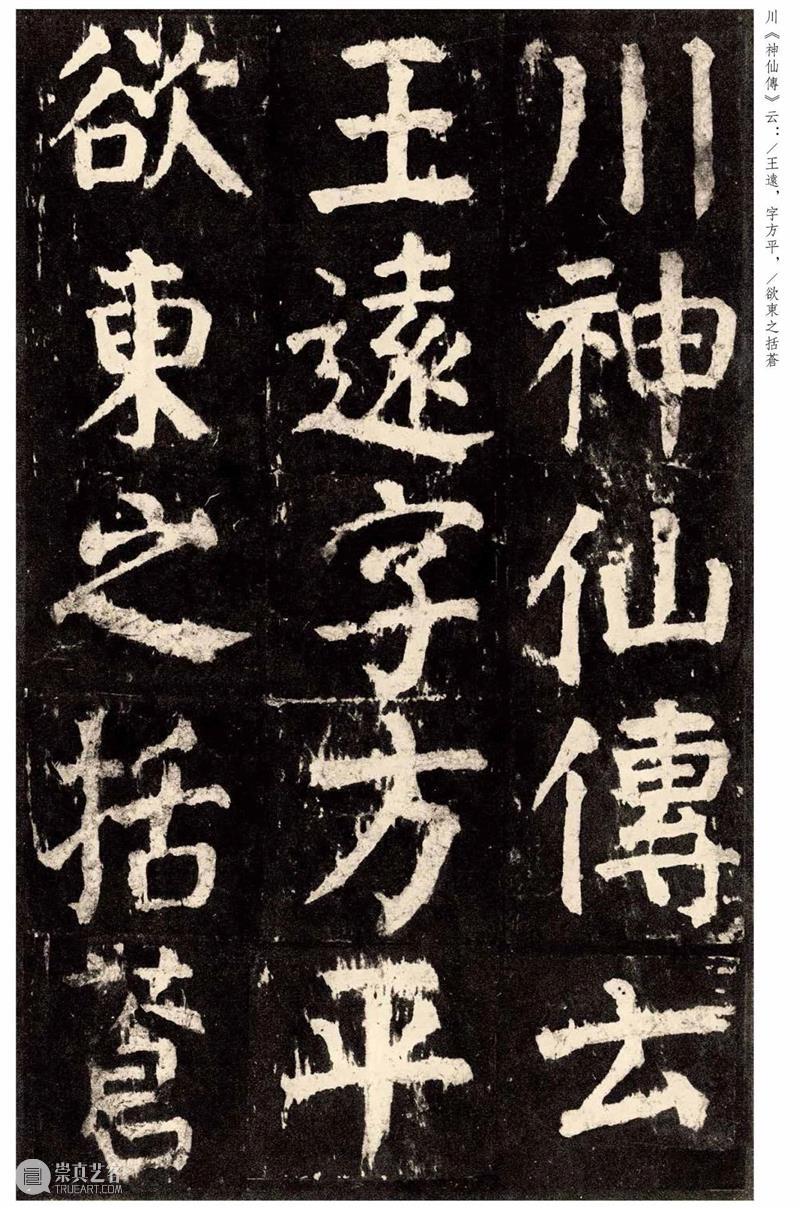 川《神仙傳》云：／王遠，字方平，／欲東之括蒼
川神仙傳云
王遠字方平
欲東之括蒼
崇真艺客
TRUEART.COM